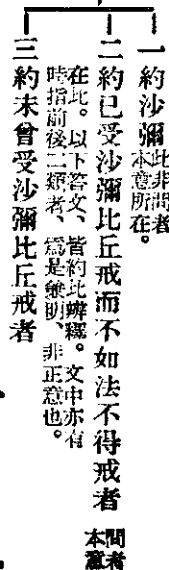 一 約沙彌 此非問者
本意所在。
二 約已受沙彌比丘戒而不如法不得戒者 問者
本意
在此。以下答文、皆約此辯釋。文中亦有
時指前後二類者、爲是兼明、非正意也。
三 約未曾受沙彌比丘戒者